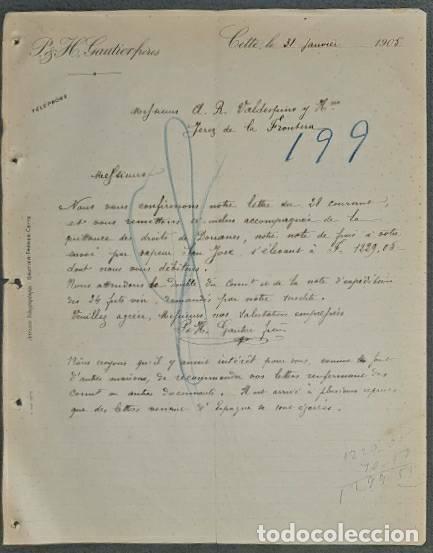 P. & H. Gautier frères
Cette, le 31 janvier 1905
TÉLÉPHONE
Messieurs A. R. Valdespino y Hno
Jerez de la Frontera
199
Messieurs
Nous vous confirmons notre lettre du 28 courant,
et vous remettons ci-inclus accompagnée de la
quittance des droits de Douanes, notre note de frais à votre
envoi par vapeur San José, s'élevant à F. 1229,05
dont nous vous débitons.
Nous attendons le double du Connt et de la note d'expédition
des 24 fûts vin, demandés par notre susdite.
Veuillez agréer, Messieurs, nos salutations empressées
P. & H. Gautier frères
Nous croyons qu'il y aurait intérêt pour vous, comme le font
d'autres maisons, de recommander vos lettres renfermant des
Connt ou autres documents. Il est arrivé à plusieurs reprises
que des lettres venant d'Espagne se sont égarées.
Adresse Télégraphique : Gautier Frères Cette
todocoleccion.net